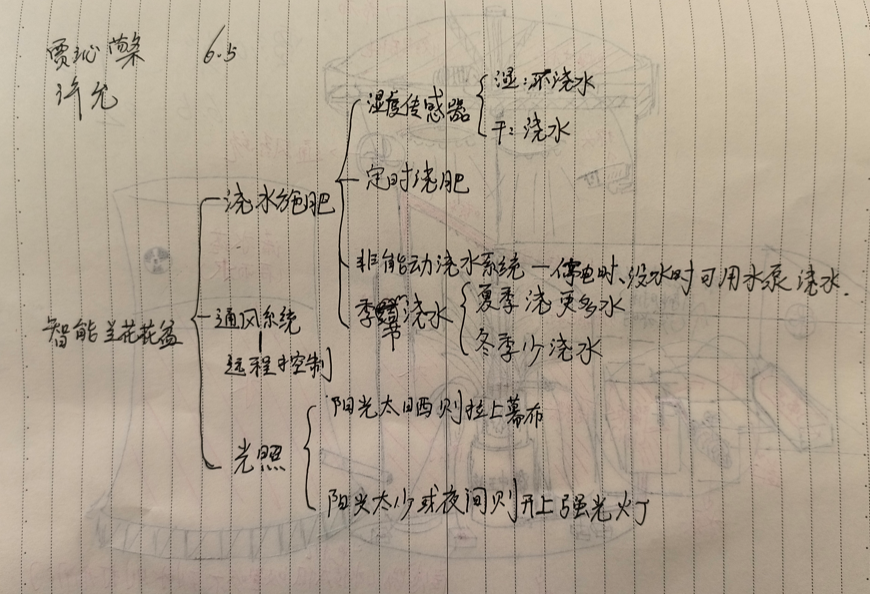 贾沁蘩 6.5
许允
湿度传感器
湿：不浇水
干：浇水
定时浇肥
浇水施肥
非能动浇水系统—停电时、没水时可用水泵浇水.
季节浇水
夏季浇更多水
冬季少浇水
智能兰花花盆
通风系统
远程控制
光照
阳光太晒则拉上幕布
阳光太少或夜间则开上强光灯